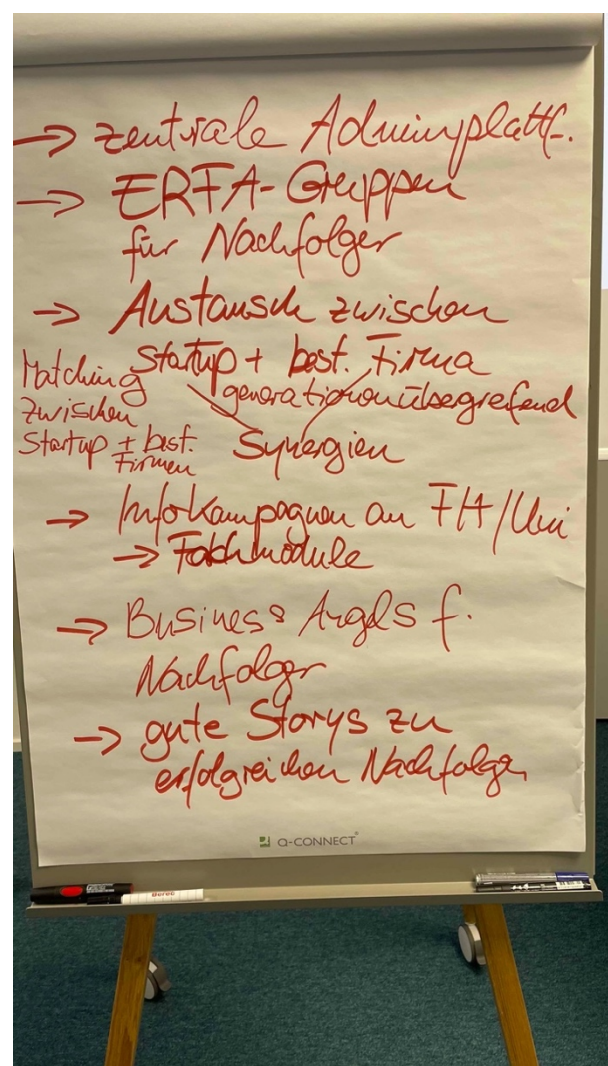 → zentrale Adminplattf.
→ ERFA-Gruppen
für Nachfolger
→ Austausch zwischen
Startup + best. Firma
generationenübergreifend
Synergien
Matching
zwischen
Startup + best.
Firmen
→ Infokampagnen an FH/Uni
→ Fachmodule
→ Business Angels f.
Nachfolger
→ gute Storys zu
erfolgreichen Nachfolgen
Q-CONNECT